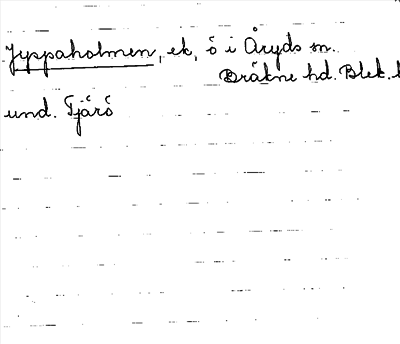 Jyppaholmen, ek, ö i Åryds sn.
Bräkne hd. Blek. l
und. Tjärö